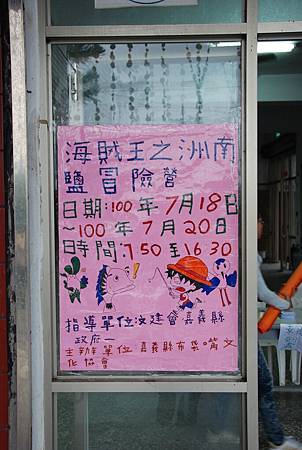 海賊王之洲南
鹽冒險營
日期：100年7月18日
~100年7月20日
時間：7 50至16 30
指導單位：文建會 嘉義縣
政府
主辦單位 嘉義縣布袋嘴文
化協會